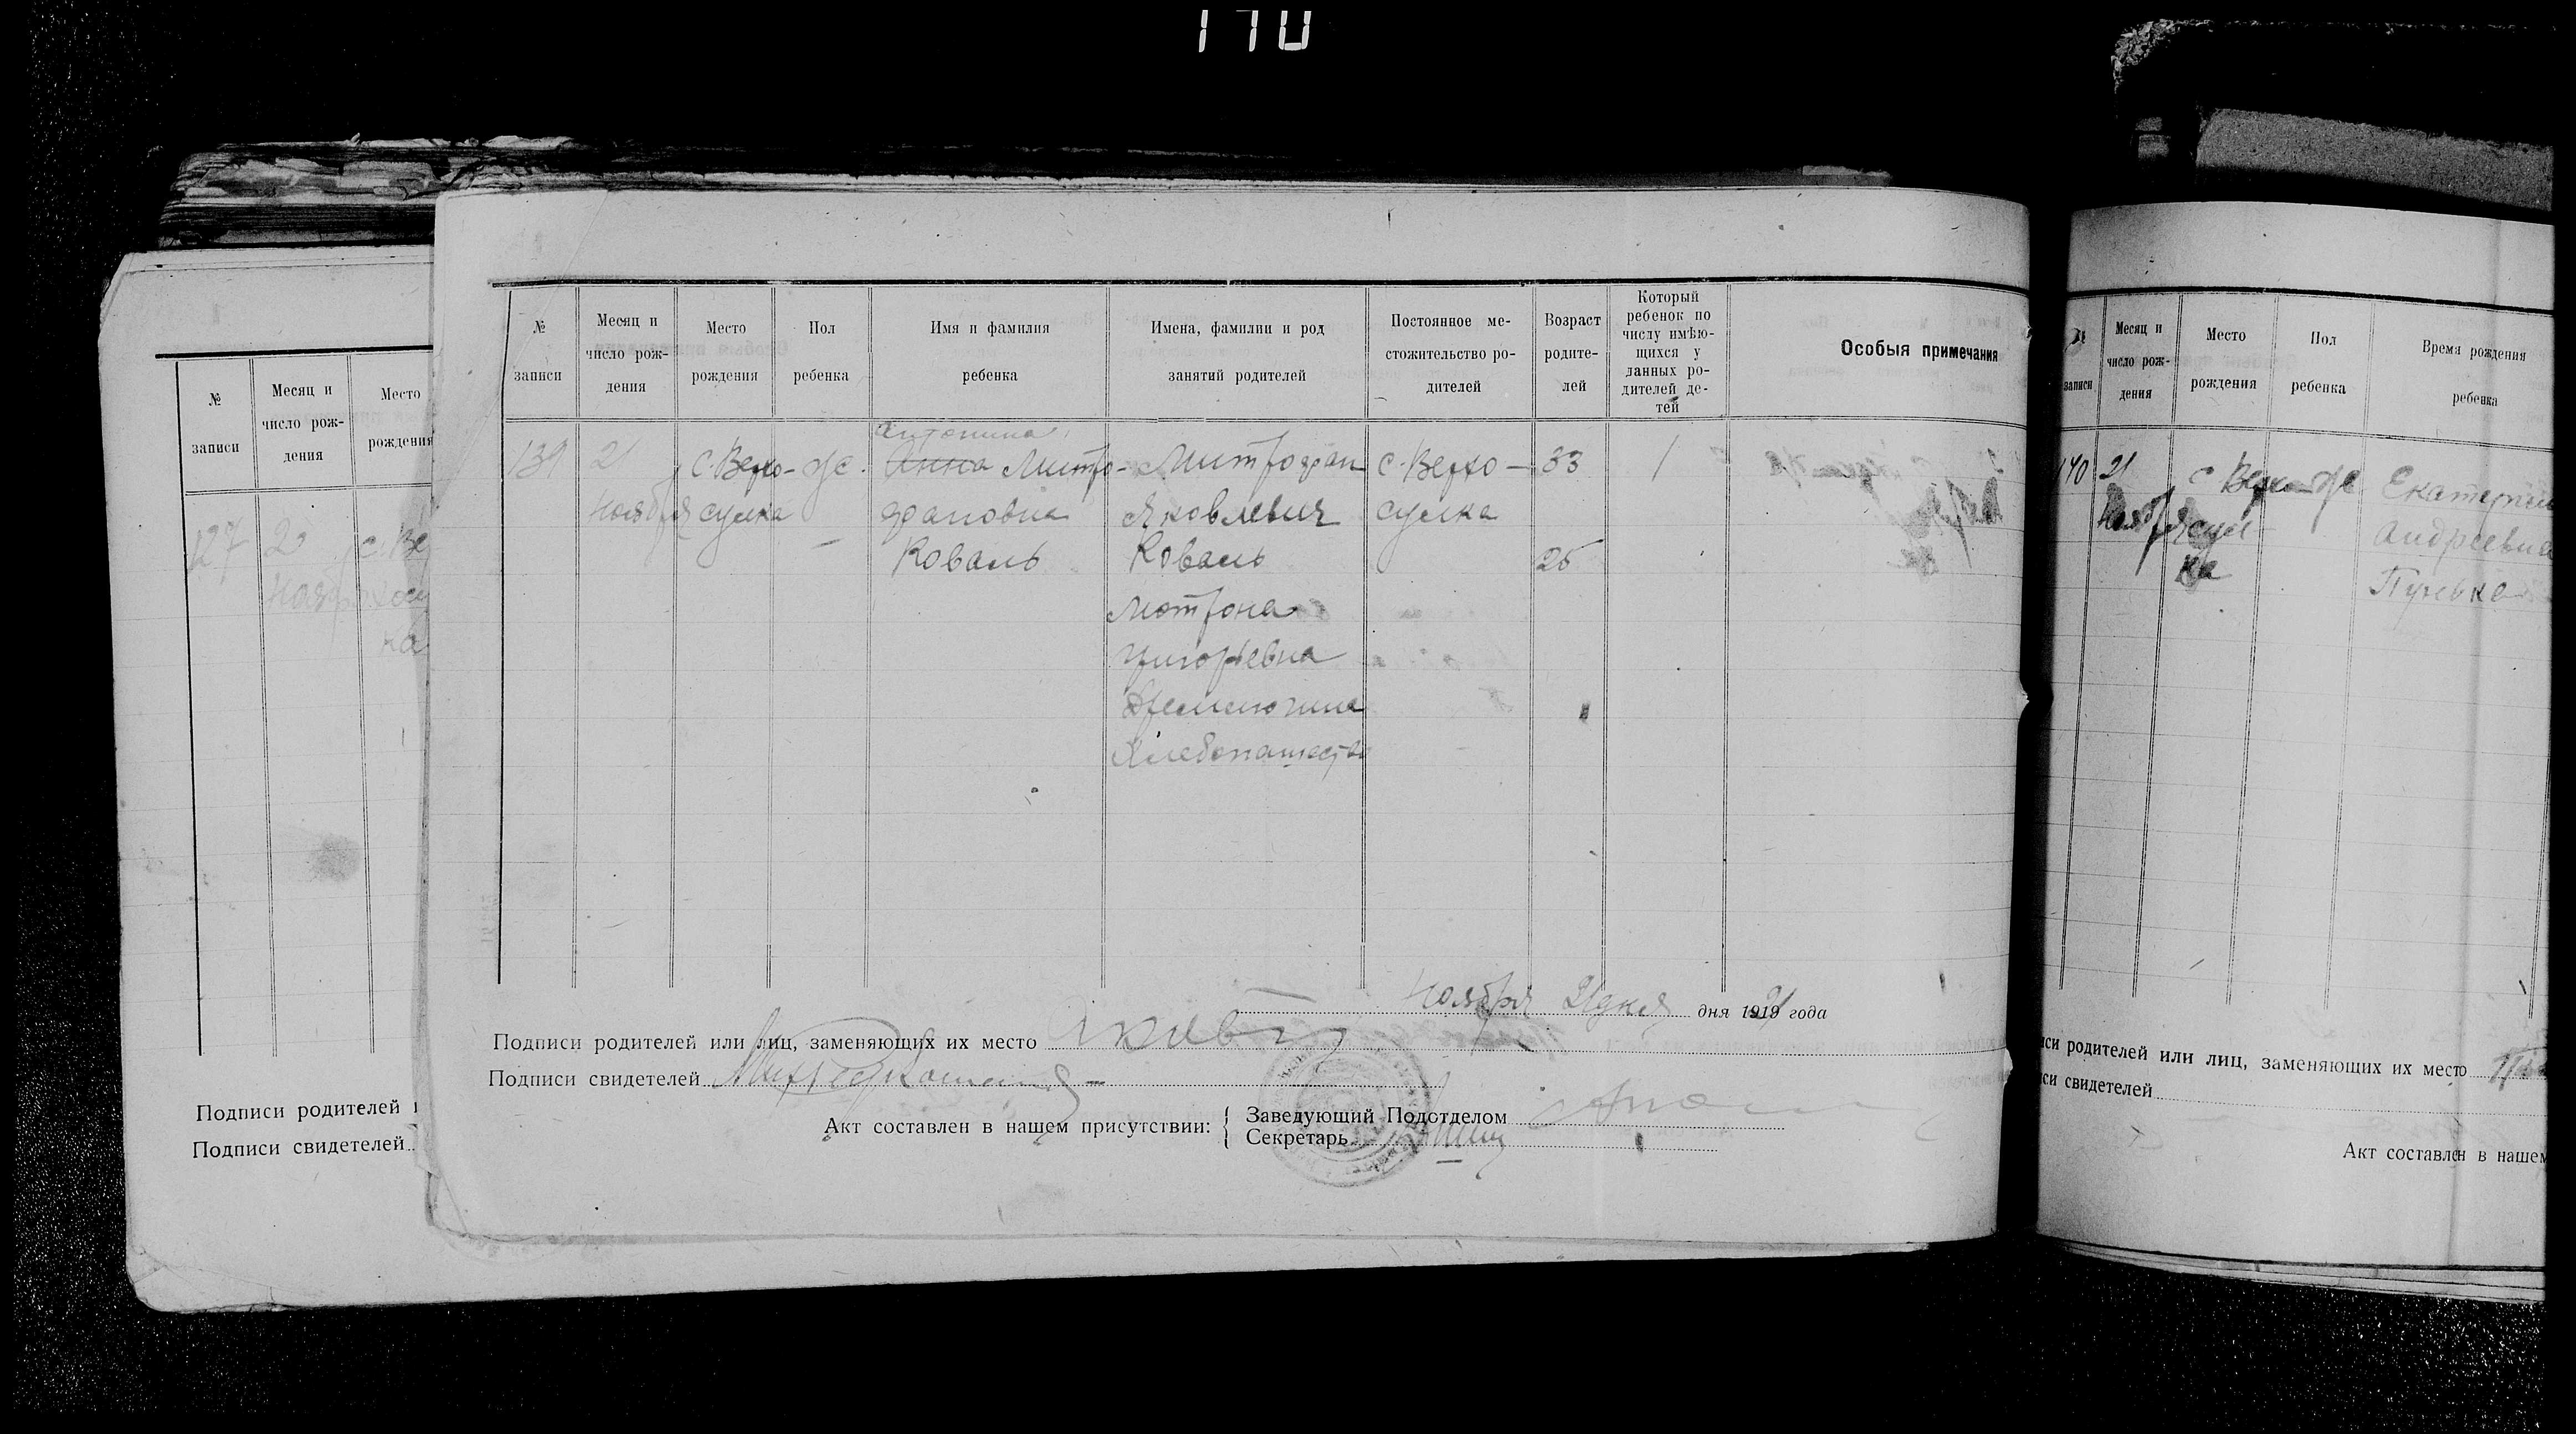 170
№ записи
Месяц и число рождения
Место рождения
127
2
с. Ве
Нояб
ка
Подписи родителей
Подписи свидетелей
№
записи
Месяц и
число рож-
дения
Место
рождения
Пол
ребенка
Имя и фамилия
ребенка
Имена, фамилии и род
занятий родителей
Постоянное ме-
стожительство ро-
дителей
Возраст
родите-
лей
Который
ребенок по
числу имѣю-
щихся у
данных ро-
дителей де-
тей
Особыя примечания
139
21
Ноября
с. Верхо-
сулка
же.
Антонина
Анна Митро-
фановна
Коваль
Митрофан
Яковлевич
Коваль
Мотрона
Григорьевна
Хлебопашество
с. Верхо-
сулка
33
25
1
Ноября 21 дня дня 1921 года
Подписи родителей или лиц, заменяющих их место
Подписи свидетелей
Акт составлен в нашем присутствии:
Заведующий Подотделом
Секретарь
№
записи
Месяц и
число рож-
дения
Место
рождения
Пол
ребенка
Время рождения
ребенка
140
21
Ноября
с Верхо
сул-
ка
же
Екатерин
Андреевна
писи родителей или лиц, заменяющих их место
писи свидетелей
Акт составлен в нашем